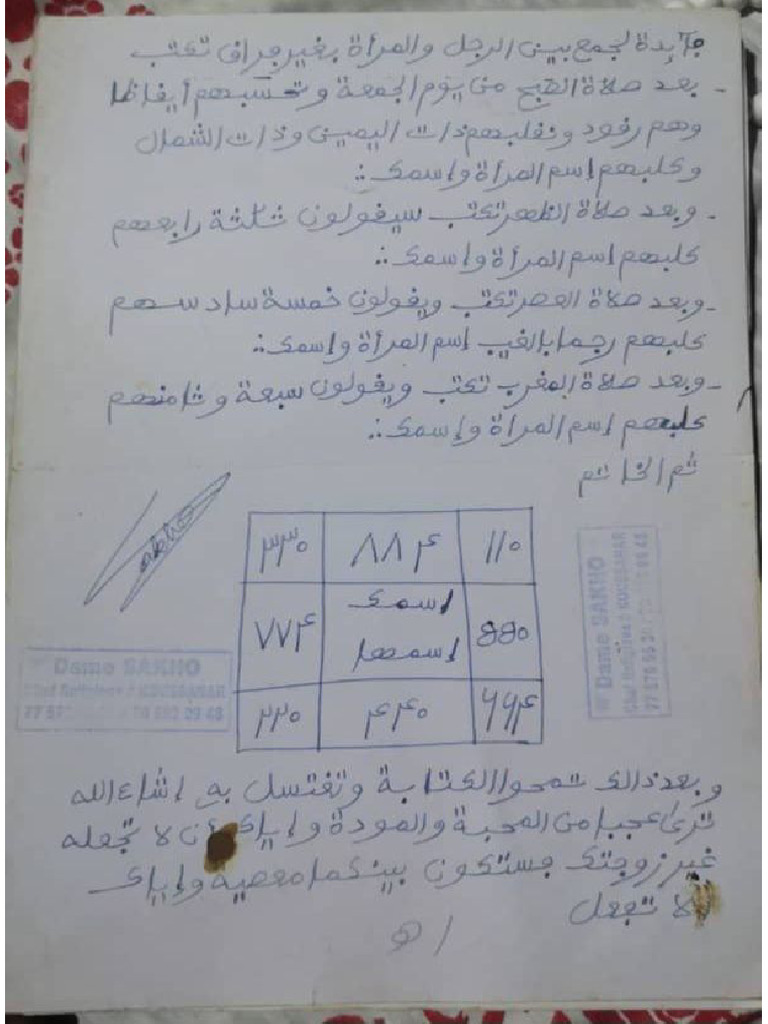 فايدة لجمع بين الرجل والمرأة بغير فراق تكتب
- بعد صلاة الصبح من يوم الجمعة وتحسبهم أيقاظا
وهم رقود ونقلبهم ذات اليمين وذات الشمال
وكلبهم اسم المرأة واسمك ؞
- وبعد صلاة الظهر تكتب سيقولون ثلثة رابعهم
كلبهم اسم المرأة واسمك ؞
- وبعد صلاة العصر تكتب ويقولون خمسة سادسهم
كلبهم رجما بالغيب اسم المرأة واسمك ؞
- وبعد صلاة المغرب تكتب ويقولون سبعة وثامنهم
كلبهم اسم المرأة واسمك ؞
ثم الخاتم
٣٣٠ ٨٨۴ ١١٠
اسمك
٧٧۴ ۵۵٠
اسمها
٢٢٠ ۴۴٠ ۶۶۴
Sakho
Demo SAKHO
Chef Religieux / KOUSSANAR
Demo SAKHO
Chef Religieux / KOUSSANAR
وبعد ذالك تمحوا الكتابة وتغتسل به إنشاء الله
ترى عجبا من المحبة والمودة وإياك أن لا تجعله
غير زوجتك فستكون بينكما معصية وإياك
لا تفعل
اھ